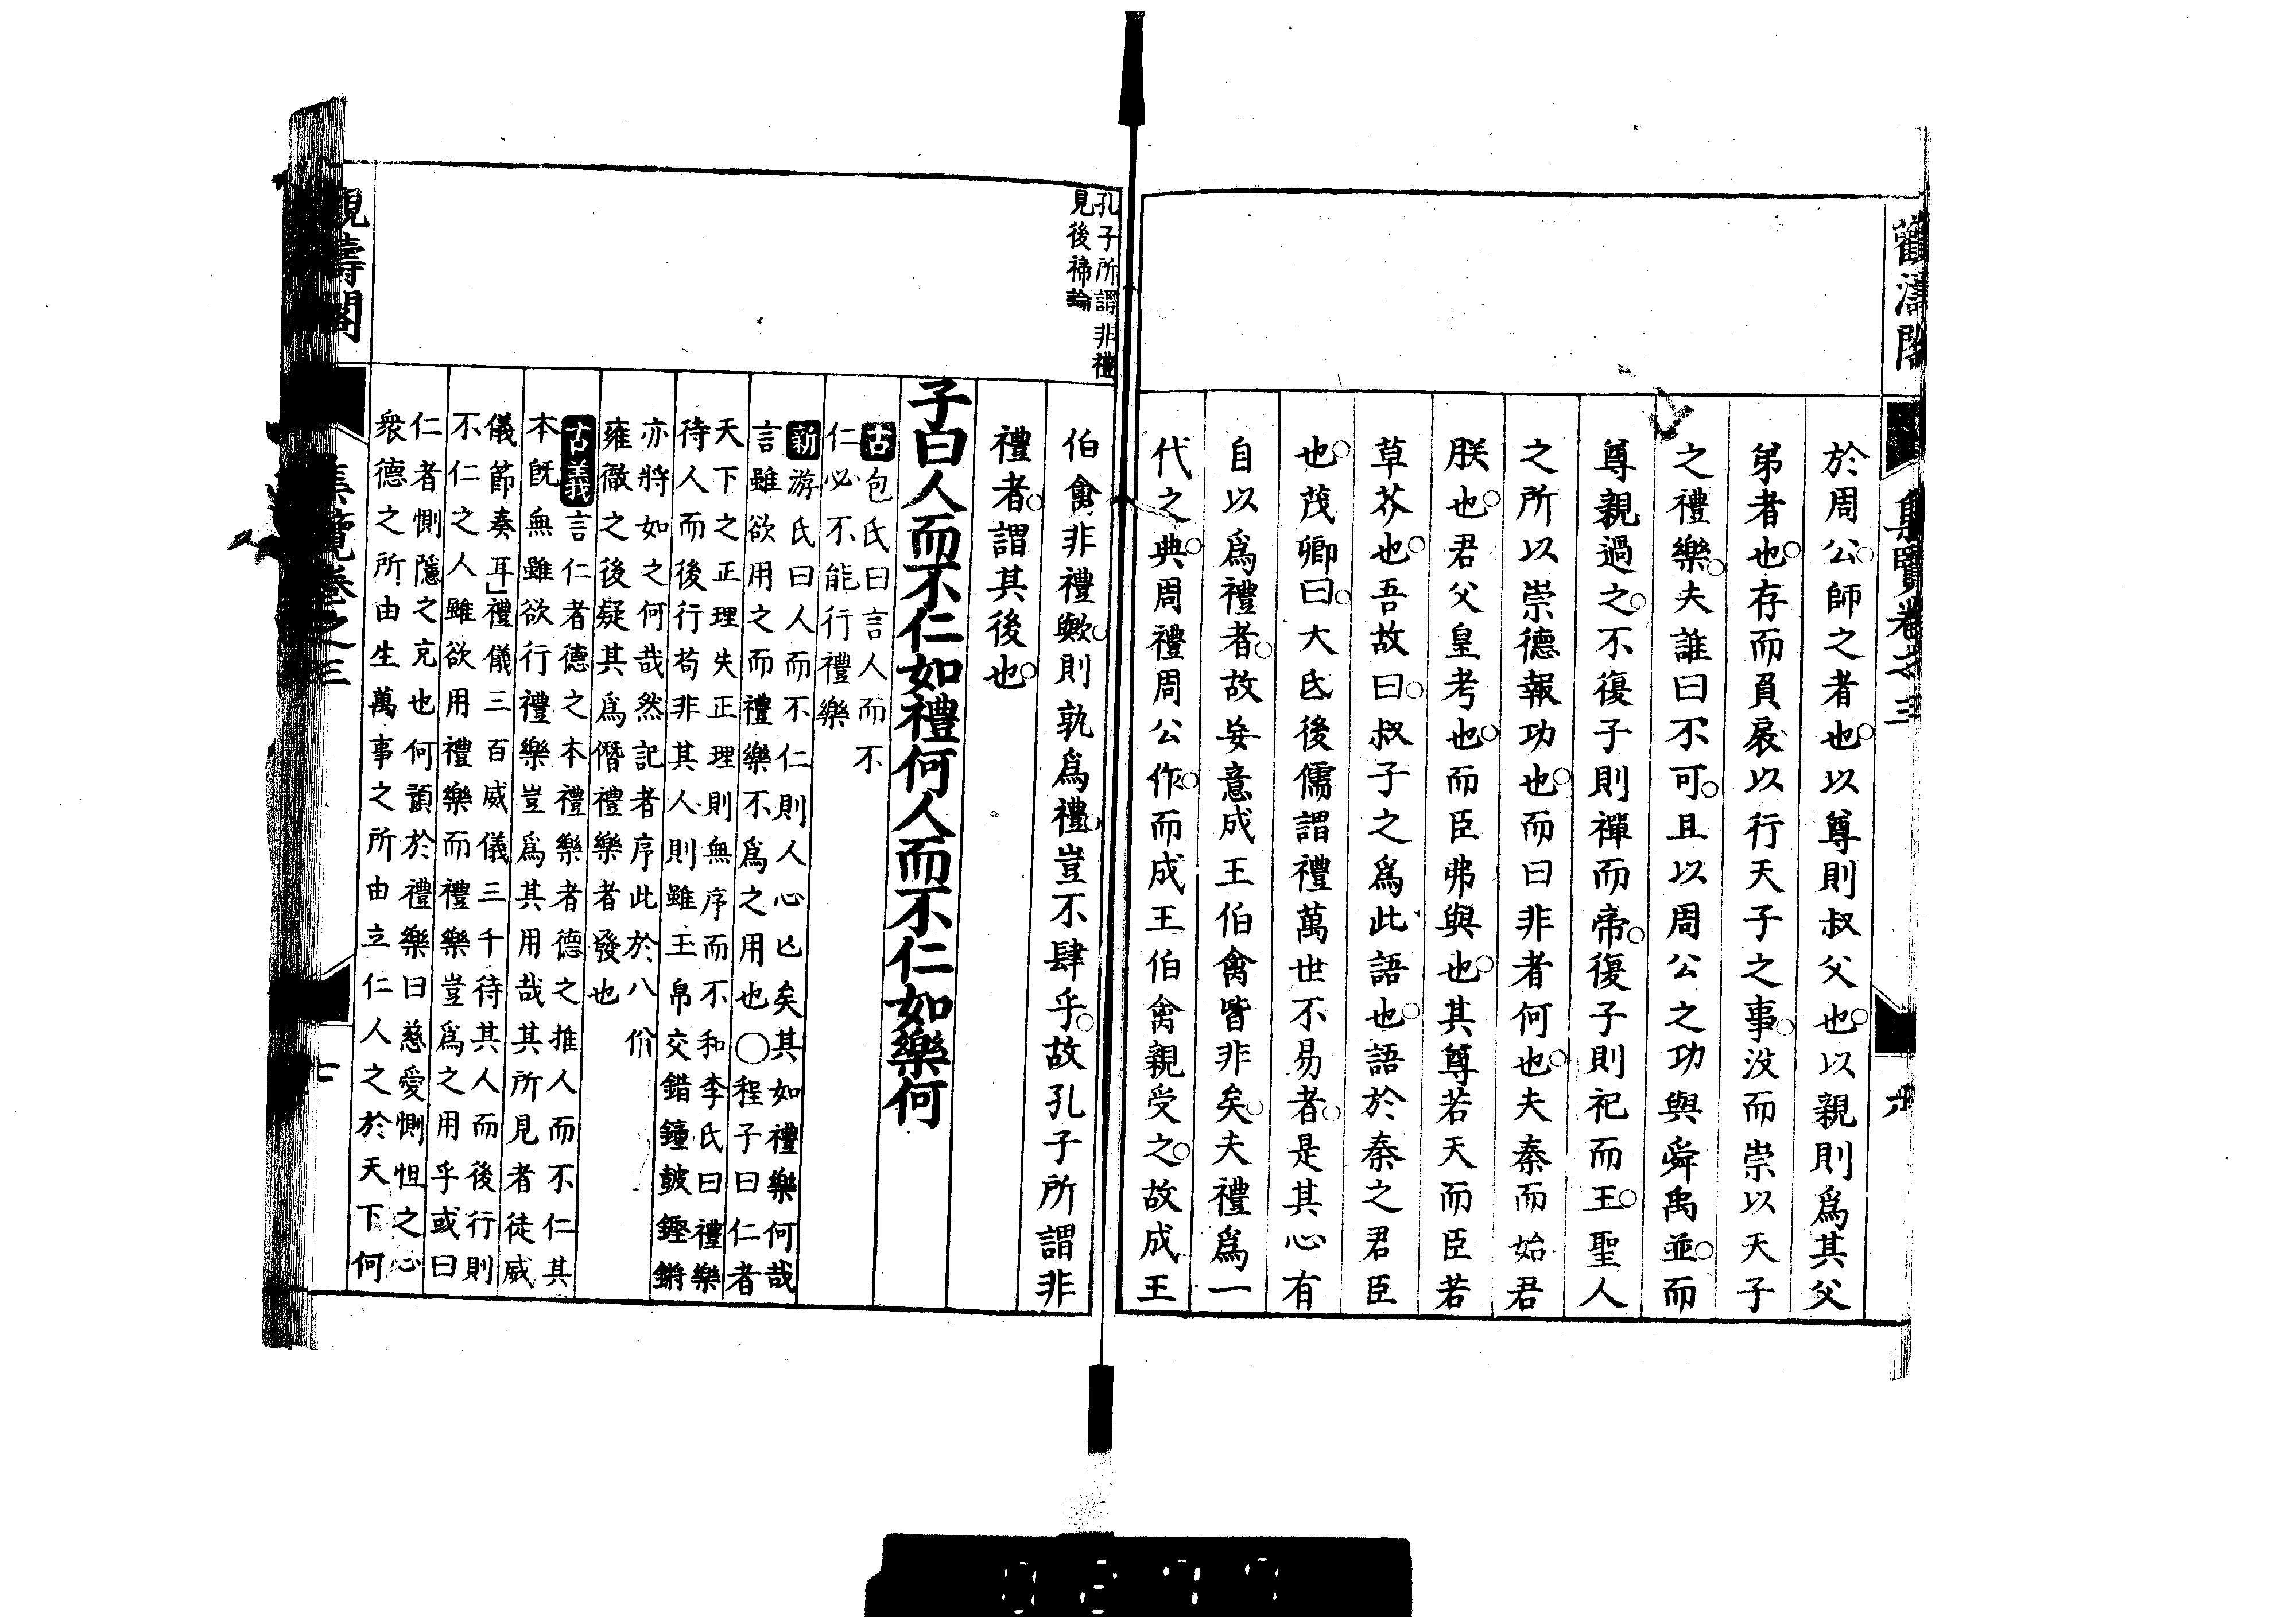 觀濤閣
集覽卷之三
六
於周公師之者也以尊則叔父也以親則爲其父
弟者也存而負扆以行天子之事沒而崇以天子
之禮樂夫誰曰不可且以周公之功與舜禹並而
尊親過之不復子則禪而帝復子則祀而王聖人
之所以崇德報功也而曰非者何也夫秦而始君
朕也君父皇考也而臣弗與也其尊若天而臣若
草芥也吾故曰叔子之爲此語也語於秦之君臣
也茂卿曰大氐後儒謂禮萬世不易者是其心有
自以爲禮者故妄意成王伯禽皆非矣夫禮爲一
代之典周禮周公作而成王伯禽親受之故成王
孔子所謂非禮
見後禘論
伯禽非禮歟則孰爲禮豈不肆乎故孔子所謂非
禮者謂其後也
子曰人而不仁如禮何人而不仁如樂何
古包氏曰言人而不
仁必不能行禮樂
新游氏曰人而不仁則人心亡矣其如禮樂何哉
言雖欲用之而禮樂不爲之用也○程子曰仁者
天下之正理失正理則無序而不和李氏曰禮樂
待人而後行苟非其人則雖玉帛交錯鐘鼓鏗鏘
亦將如之何哉然記者序此於八佾
雍徹之後疑其爲僭禮樂者發也
古義言仁者德之本禮樂者德之推人而不仁其
本旣無雖欲行禮樂豈爲其用哉其所見者徒威
儀節奏耳」禮儀三百威儀三千待其人而後行則
不仁之人雖欲用禮樂而禮樂豈爲之用乎或曰
仁者惻隱之充也何預於禮樂曰慈愛惻怛之心
衆德之所由生萬事之所由立仁人之於天下何
觀濤閣
集覽卷之三
七